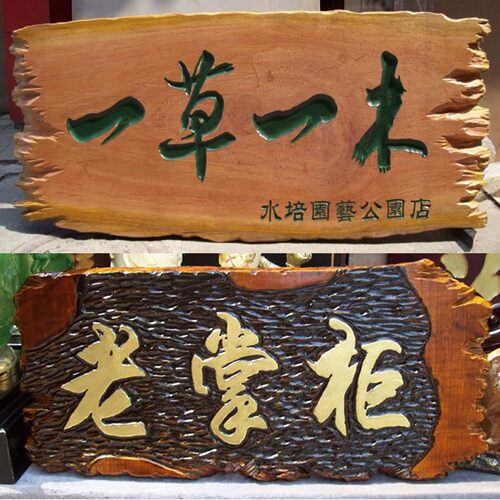 一草一木
水培園藝公園店
老掌柜